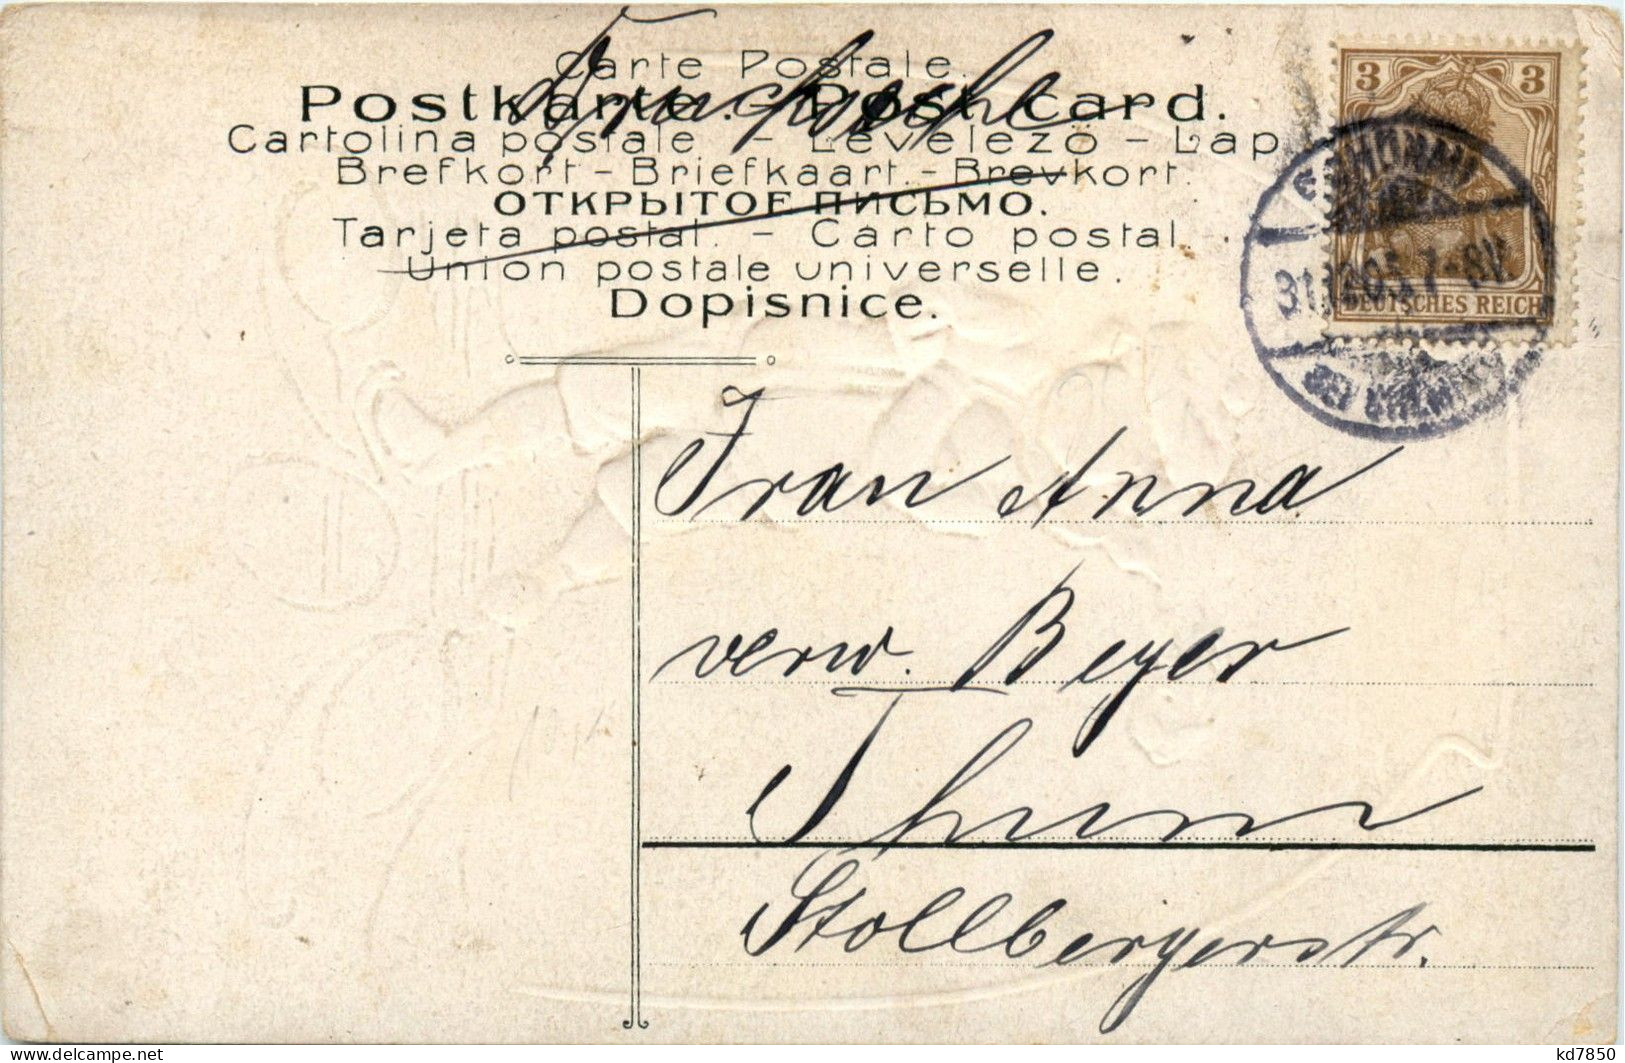 Carte Postale.
Postkarte. - Post card.
Drucksache
Cartolina postale - Levelezö - Lap
Brefkort - Briefkaart - Brevkort.
ОТКРЫТОЕ ПИСЬМО.
Tarjeta postal. - Carto postal.
Union postale universelle.
Dopisnice.
3 3
DEUTSCHES REICH
31.12.05. 7-8V.
Frau Anna
verw. Beyer
Thum
Stollbergerstr.
delcampe.net
kd7850